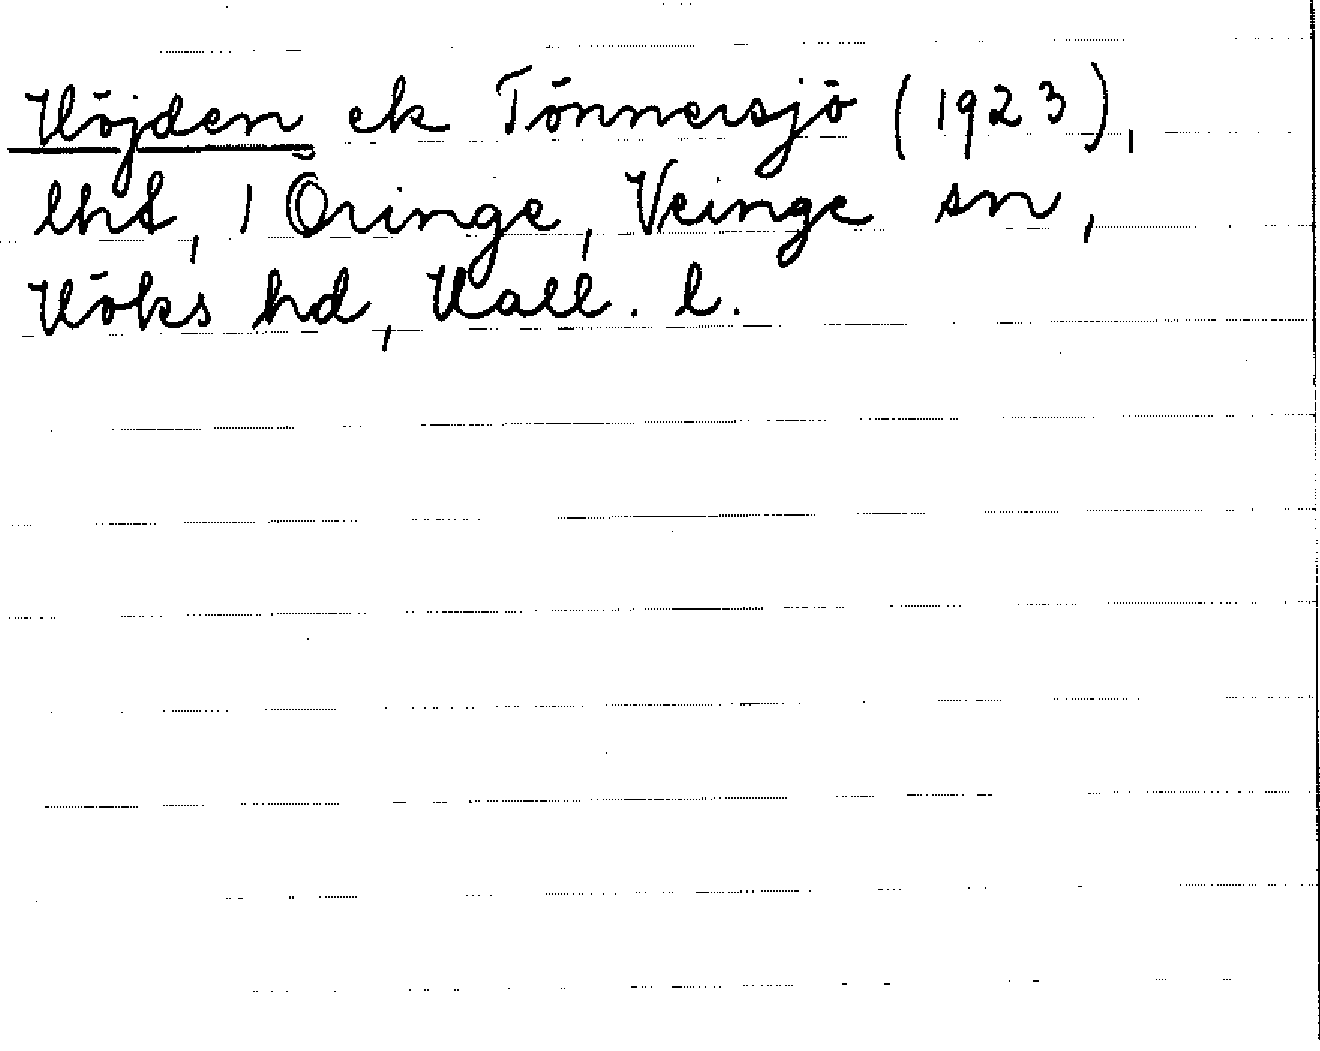 Höjden ek Tönnersjö (1923),
lht, 1 Öringe, Veinge sn,
Höks hd, Hall. l.